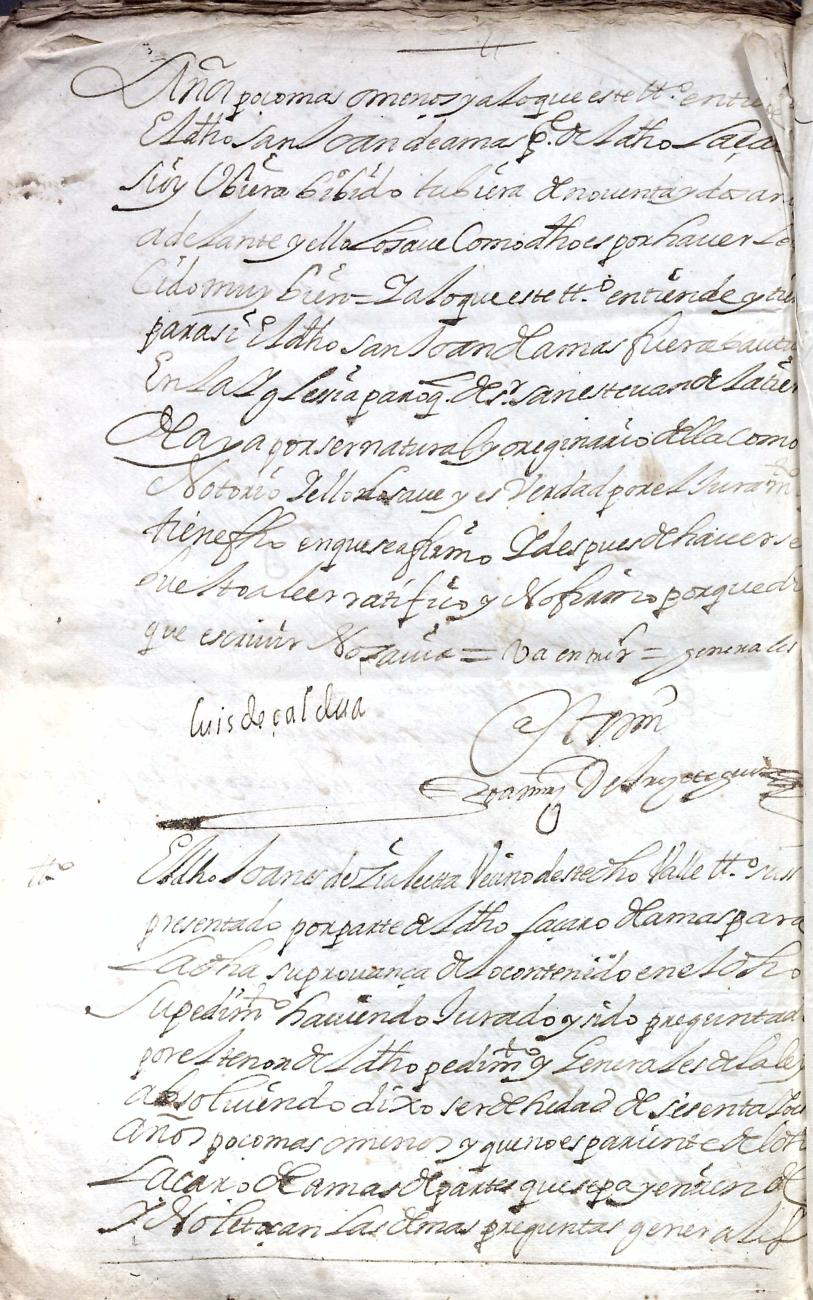 Años poco mas o menos y a lo que este tt.º entiende
El dho San Joan de amas p.e de l dho Laçaro
Si oy Ubiera bibido tubiera de noventa y dos años
adelante y ello lo save Como dho es por haver lo
Cido muy bien = Y a lo que este tt.º entiende y tiene
para si El dho san Joan de amas fuera bauti
En la Yglesia paroq. de s.r san estevan de la tierra
de aya por ser natural y oreginario della Como
Notorio Y ello lo save y es Verdad por el Juram.to
tiene fho en que se afirmo Y despues de haver se
buelto a leer ratifico y No firmo porque di
que escrivir No savia = Va enmdo = generales
Luis de çaldua
Ante mi
De
tt.º
El dho Joanes de Zuleeta Vecino deste dho Valle tt.º suso
presentado por parte de l dho Laçaro de amas para
La dha su provança de lo contenido en el dho
Su pedim.to haviendo Jurado y sido preguntad
por el tenor de l dho pedim.to y Generales de la ley
absolviendo dixo ser de hedad de sesenta y
años poco mas o menos y que no es pariente de l dho
Lacaro de amas de partes que sepa y entien de
Y No le tocan Las demas preguntas generales